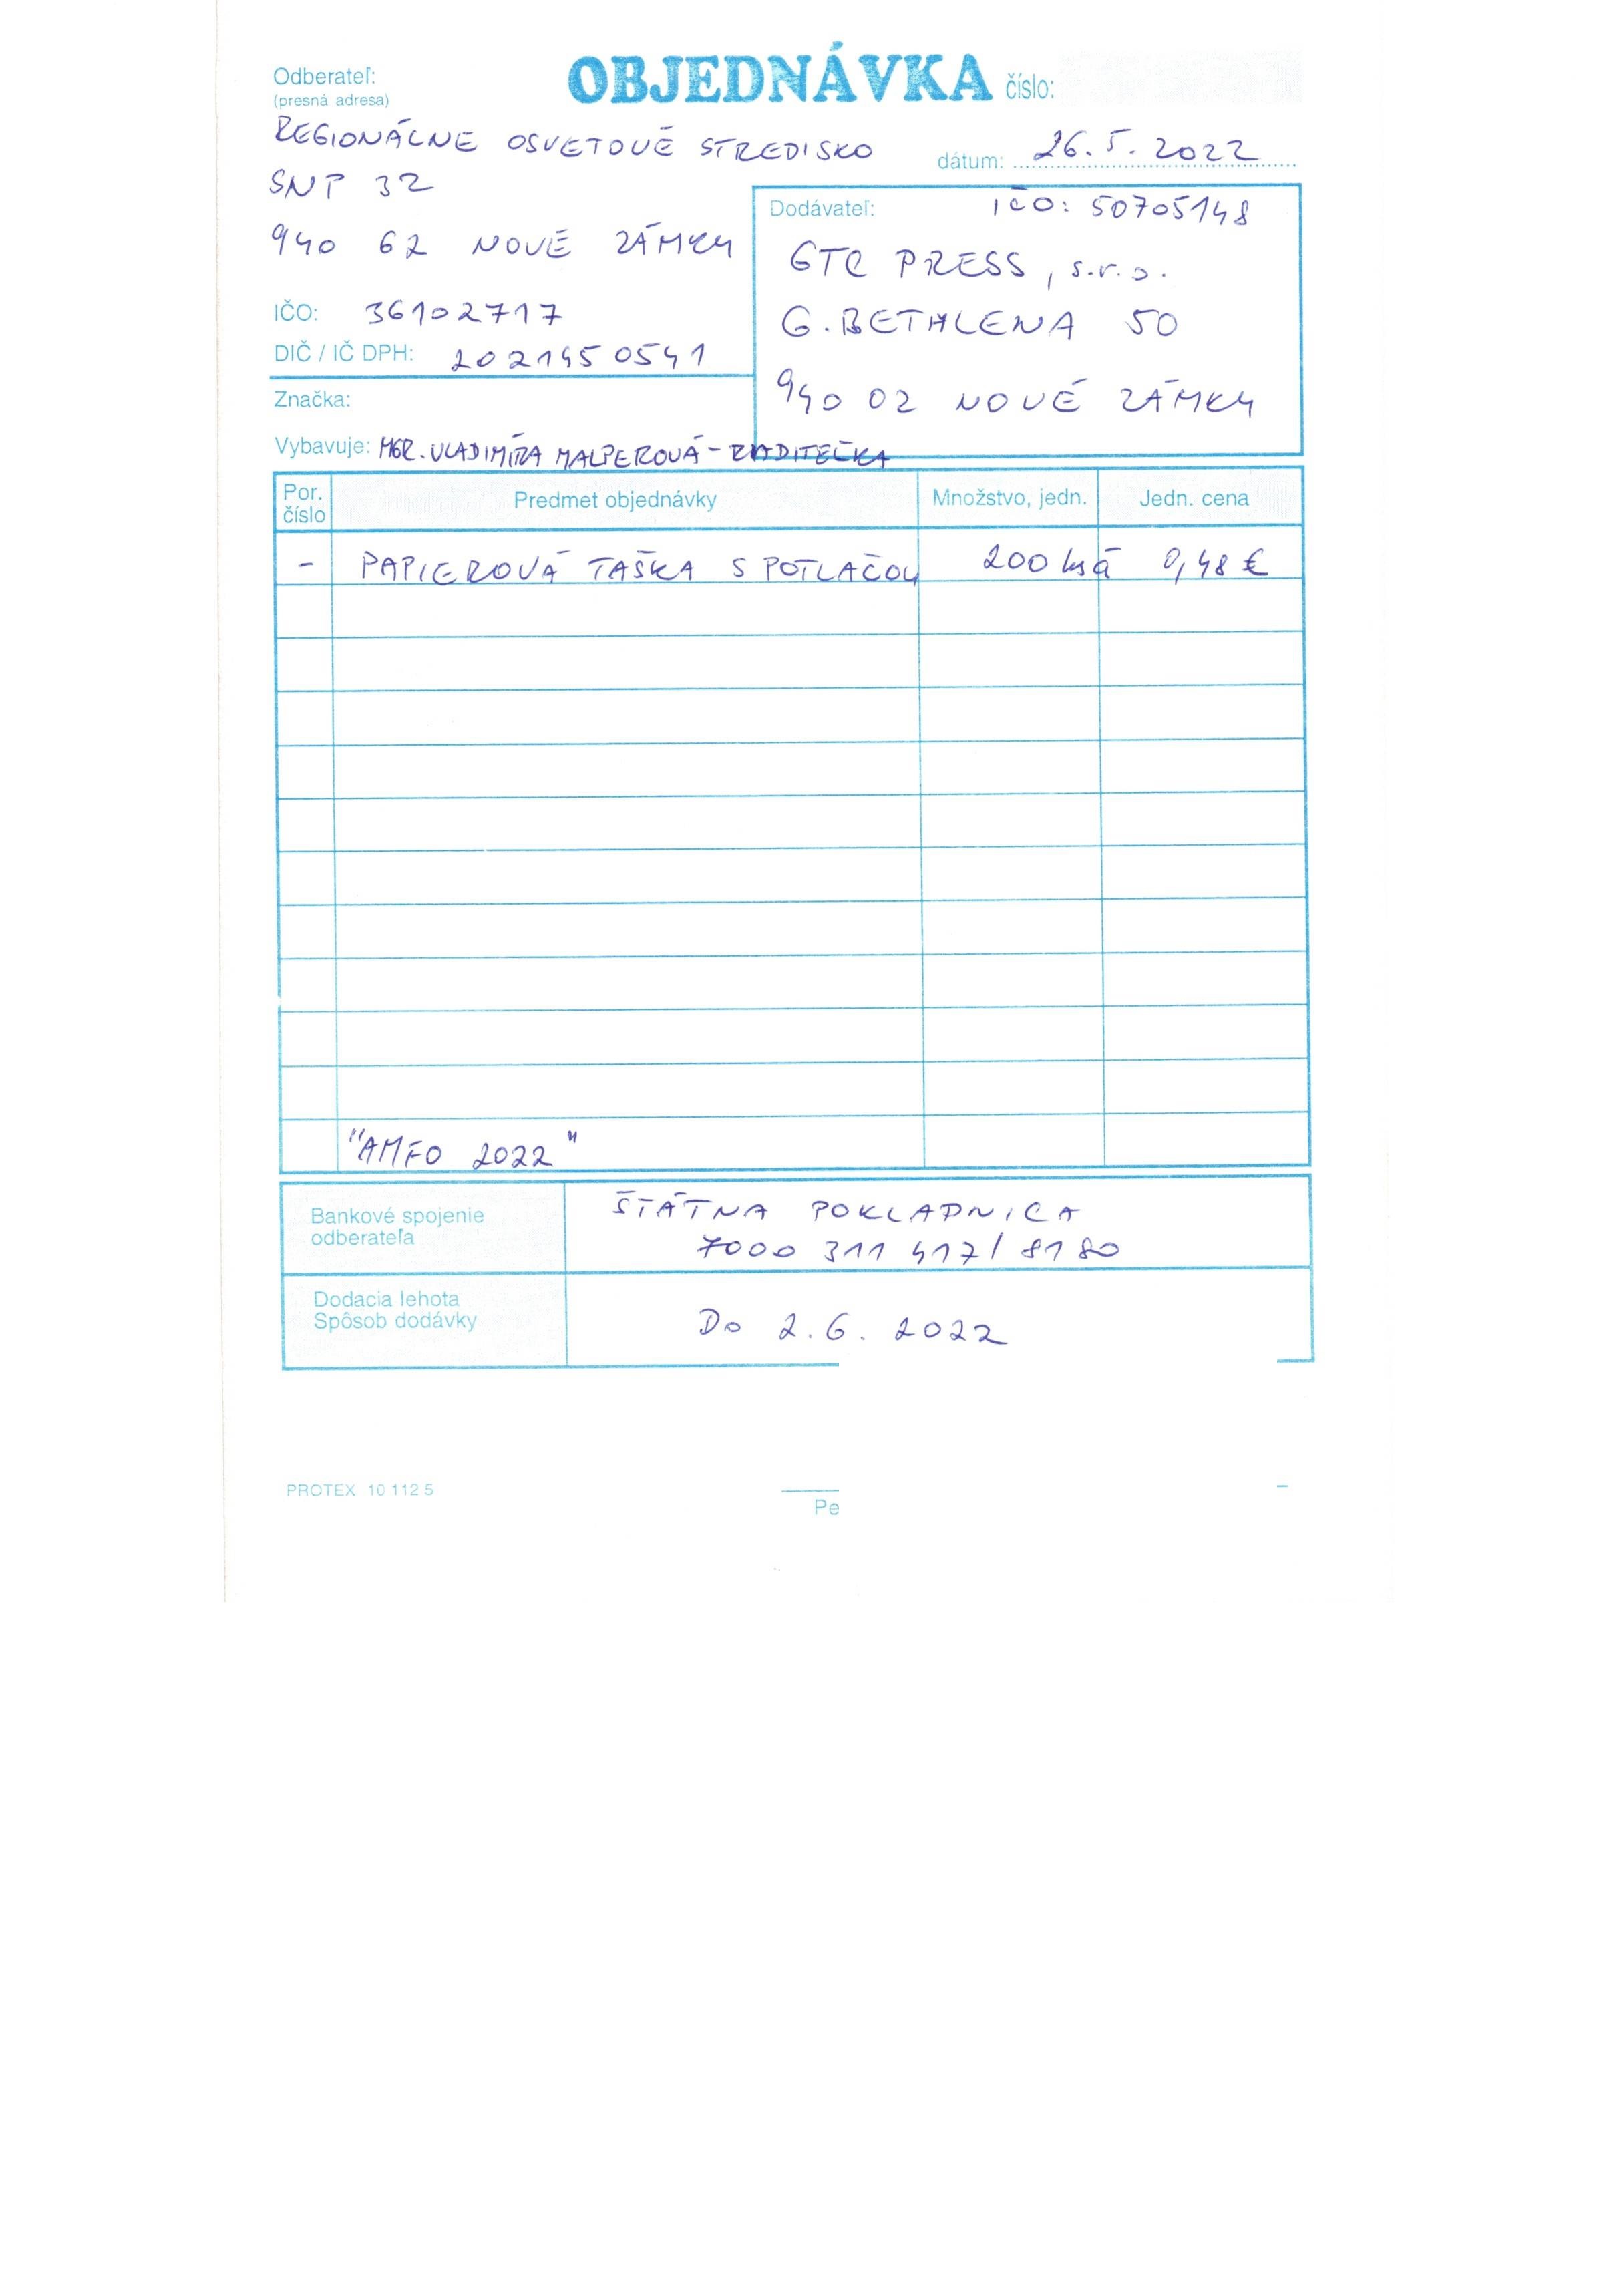 Odberateľ:
(presná adresa)
OBJEDNÁVKA číslo:
REGIONÁLNE OSVETOVÉ STREDISKO
dátum: 26.5.2022
SNP 32
940 62 NOVÉ ZÁMKY
IČO: 36102717
DIČ / IČ DPH: 2021450541
Dodávateľ: IČO: 50705148
GTC PRESS, s.r.o.
G.BETHLENA 50
940 02 NOVÉ ZÁMKY
Značka:
Vybavuje: MGR. VLADIMÍRA MALPEROVÁ - RIADITEĽKA
Por. číslo Predmet objednávky Množstvo, jedn. Jedn. cena
- PAPIEROVÁ TAŠKA S POTLAČOU 200 ks á 0,48 €
"AMFO 2022"
Bankové spojenie
odberateľa
ŠTÁTNA POKLADNICA
7000 311 417/8180
Dodacia lehota
Spôsob dodávky
Do 2.6. 2022
PROTEX 10 112 5
Pe